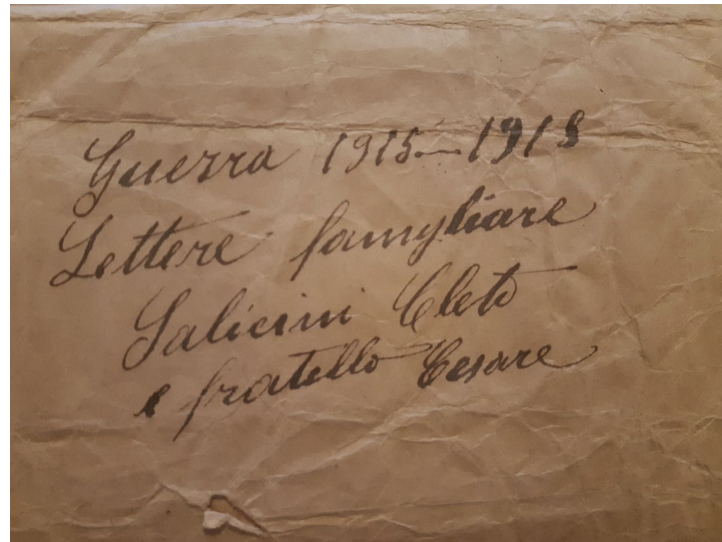 Guerra 1915-1918
Lettere famigliare
Salicini Cleto
e fratello Cesare